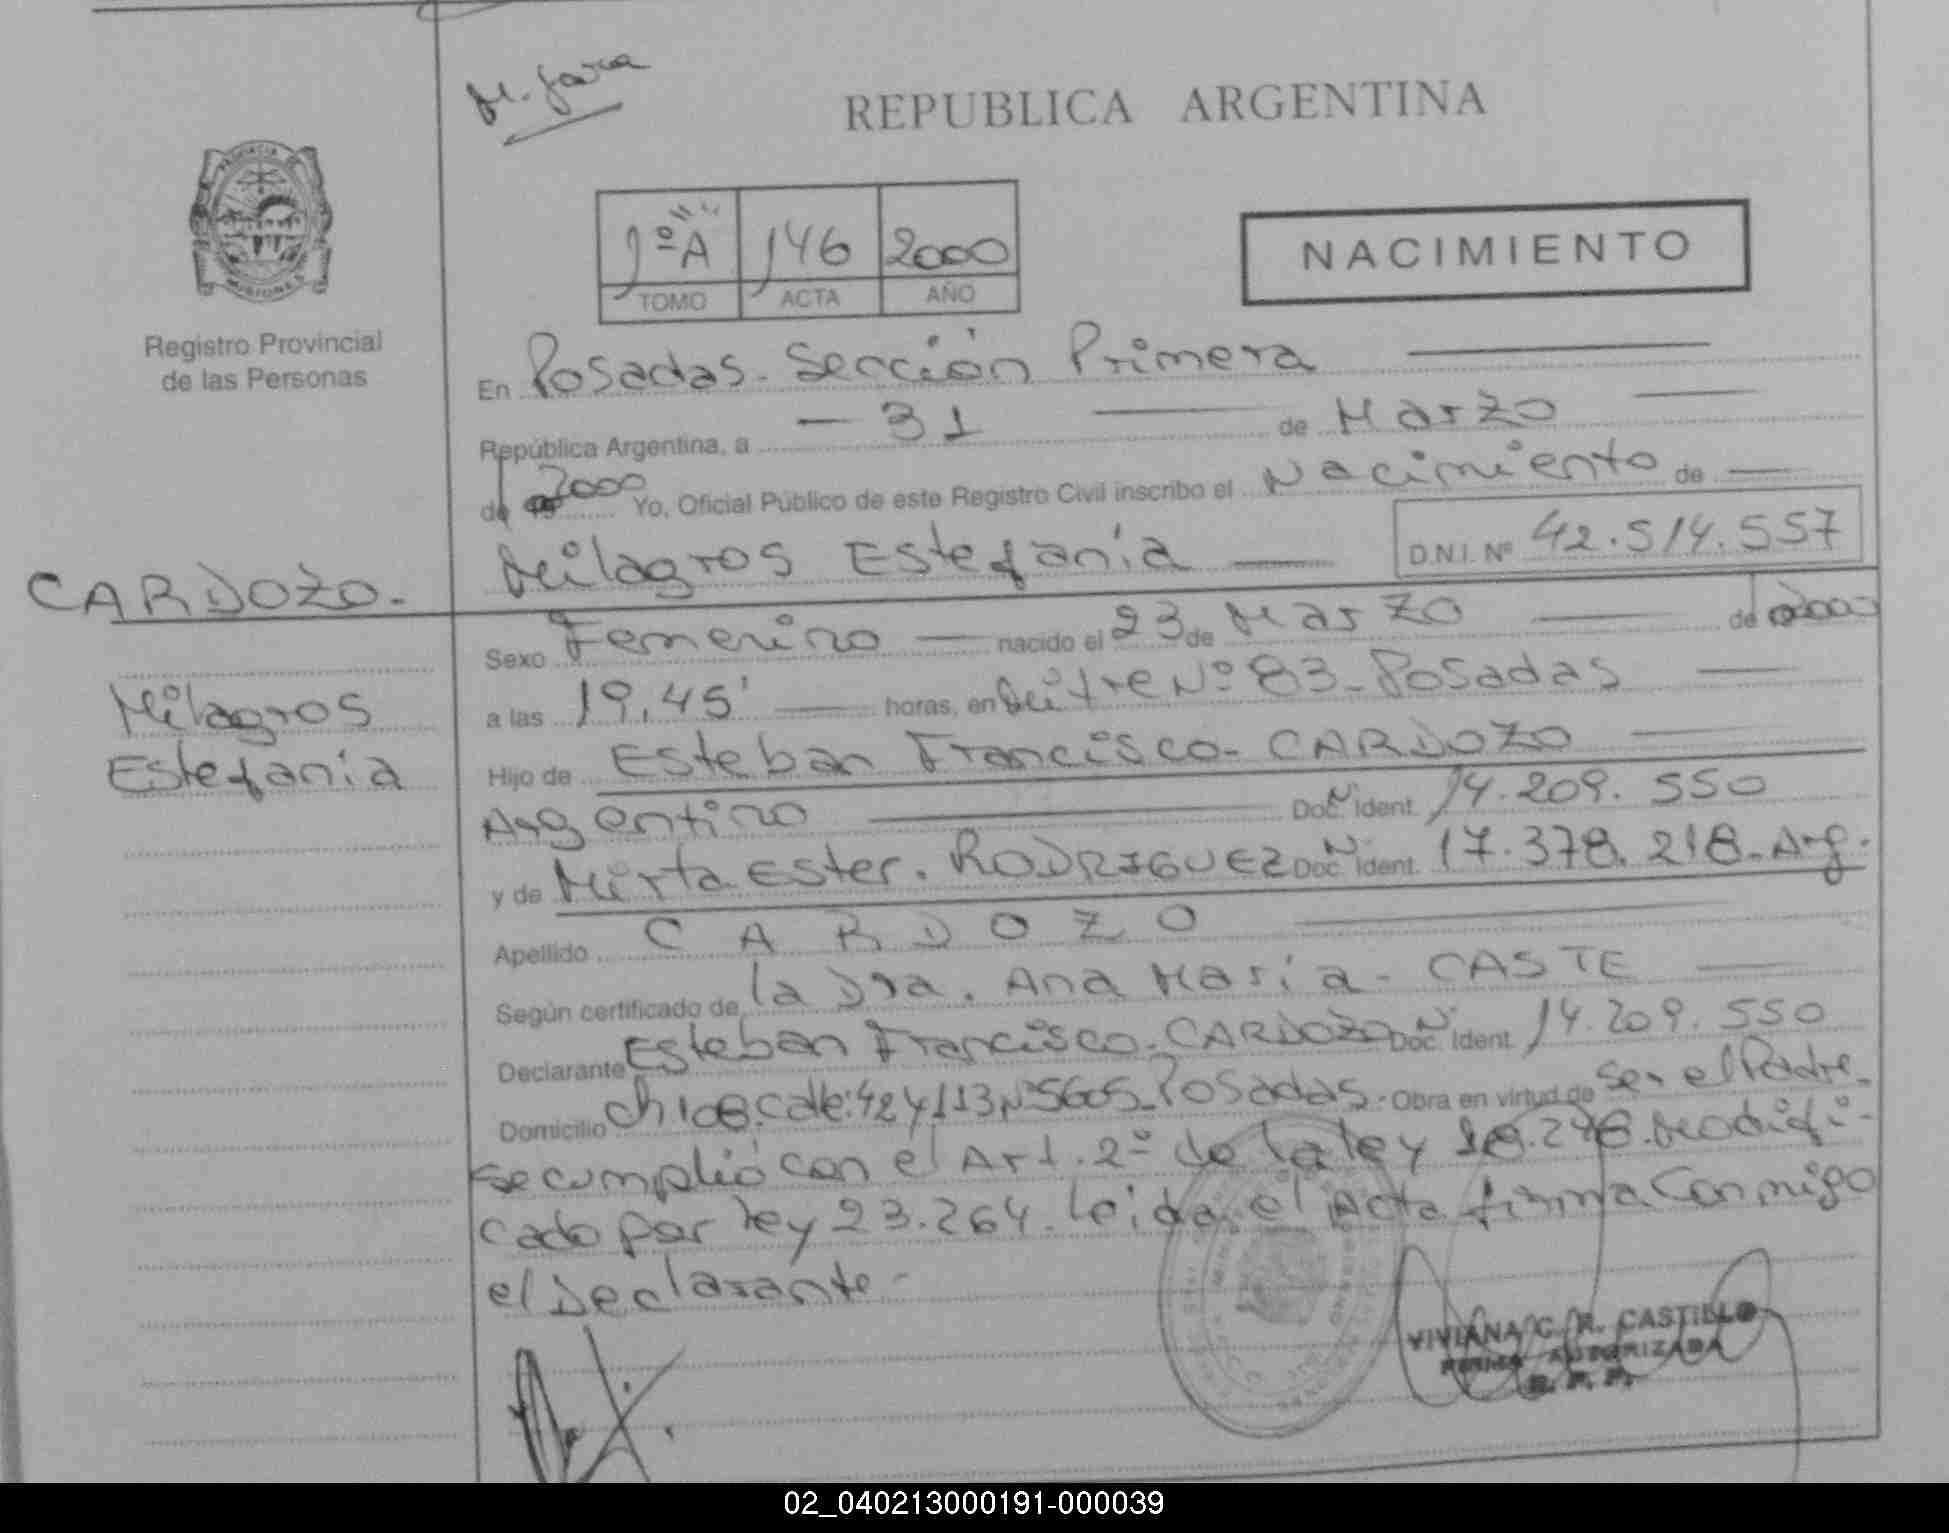 M. Jara
REPUBLICA ARGENTINA
PROVINCIA DE
MISIONES
Registro Provincial
de las Personas
1ºA 146 2000
TOMO ACTA AÑO
NACIMIENTO
En Posadas. Sección Primera
República Argentina, a 31 de Marzo
de 2000 Yo, Oficial Público de este Registro Civil inscribo el Nacimiento de
Milagros Estefanía D.N.I. Nº 42.514.557
CARDOZO.
Milagros
Estefanía
Sexo Femenino nacido el 23 de Marzo de 2000
a las 19,45' horas, en Mitre Nº 83. Posadas
Hijo de Esteban Francisco. CARDOZO
Argentino Doc. Ident. 14.209.550
y de Mirta Ester. RODRIGUEZ Doc. Ident. 17.378.218. Arg.
Apellido CARDOZO
Según certificado de la Dra. Ana María. CASTE
Declarante Esteban Francisco. CARDOZO Doc. Ident. 14.209.550
Domicilio Ch 108. Calle: 42 y 113 Nº 5605. Posadas. Obra en virtud de ser el Padre.
se cumplió con el Art. 2º de la ley 18.248. Modifi-
cado por ley 23.264. leida el Acta firma Conmigo
el Declarante-
VIVIANA C. R. CASTILLO
FIRMA AUTORIZADA
R. P. P.
02_040213000191-000039